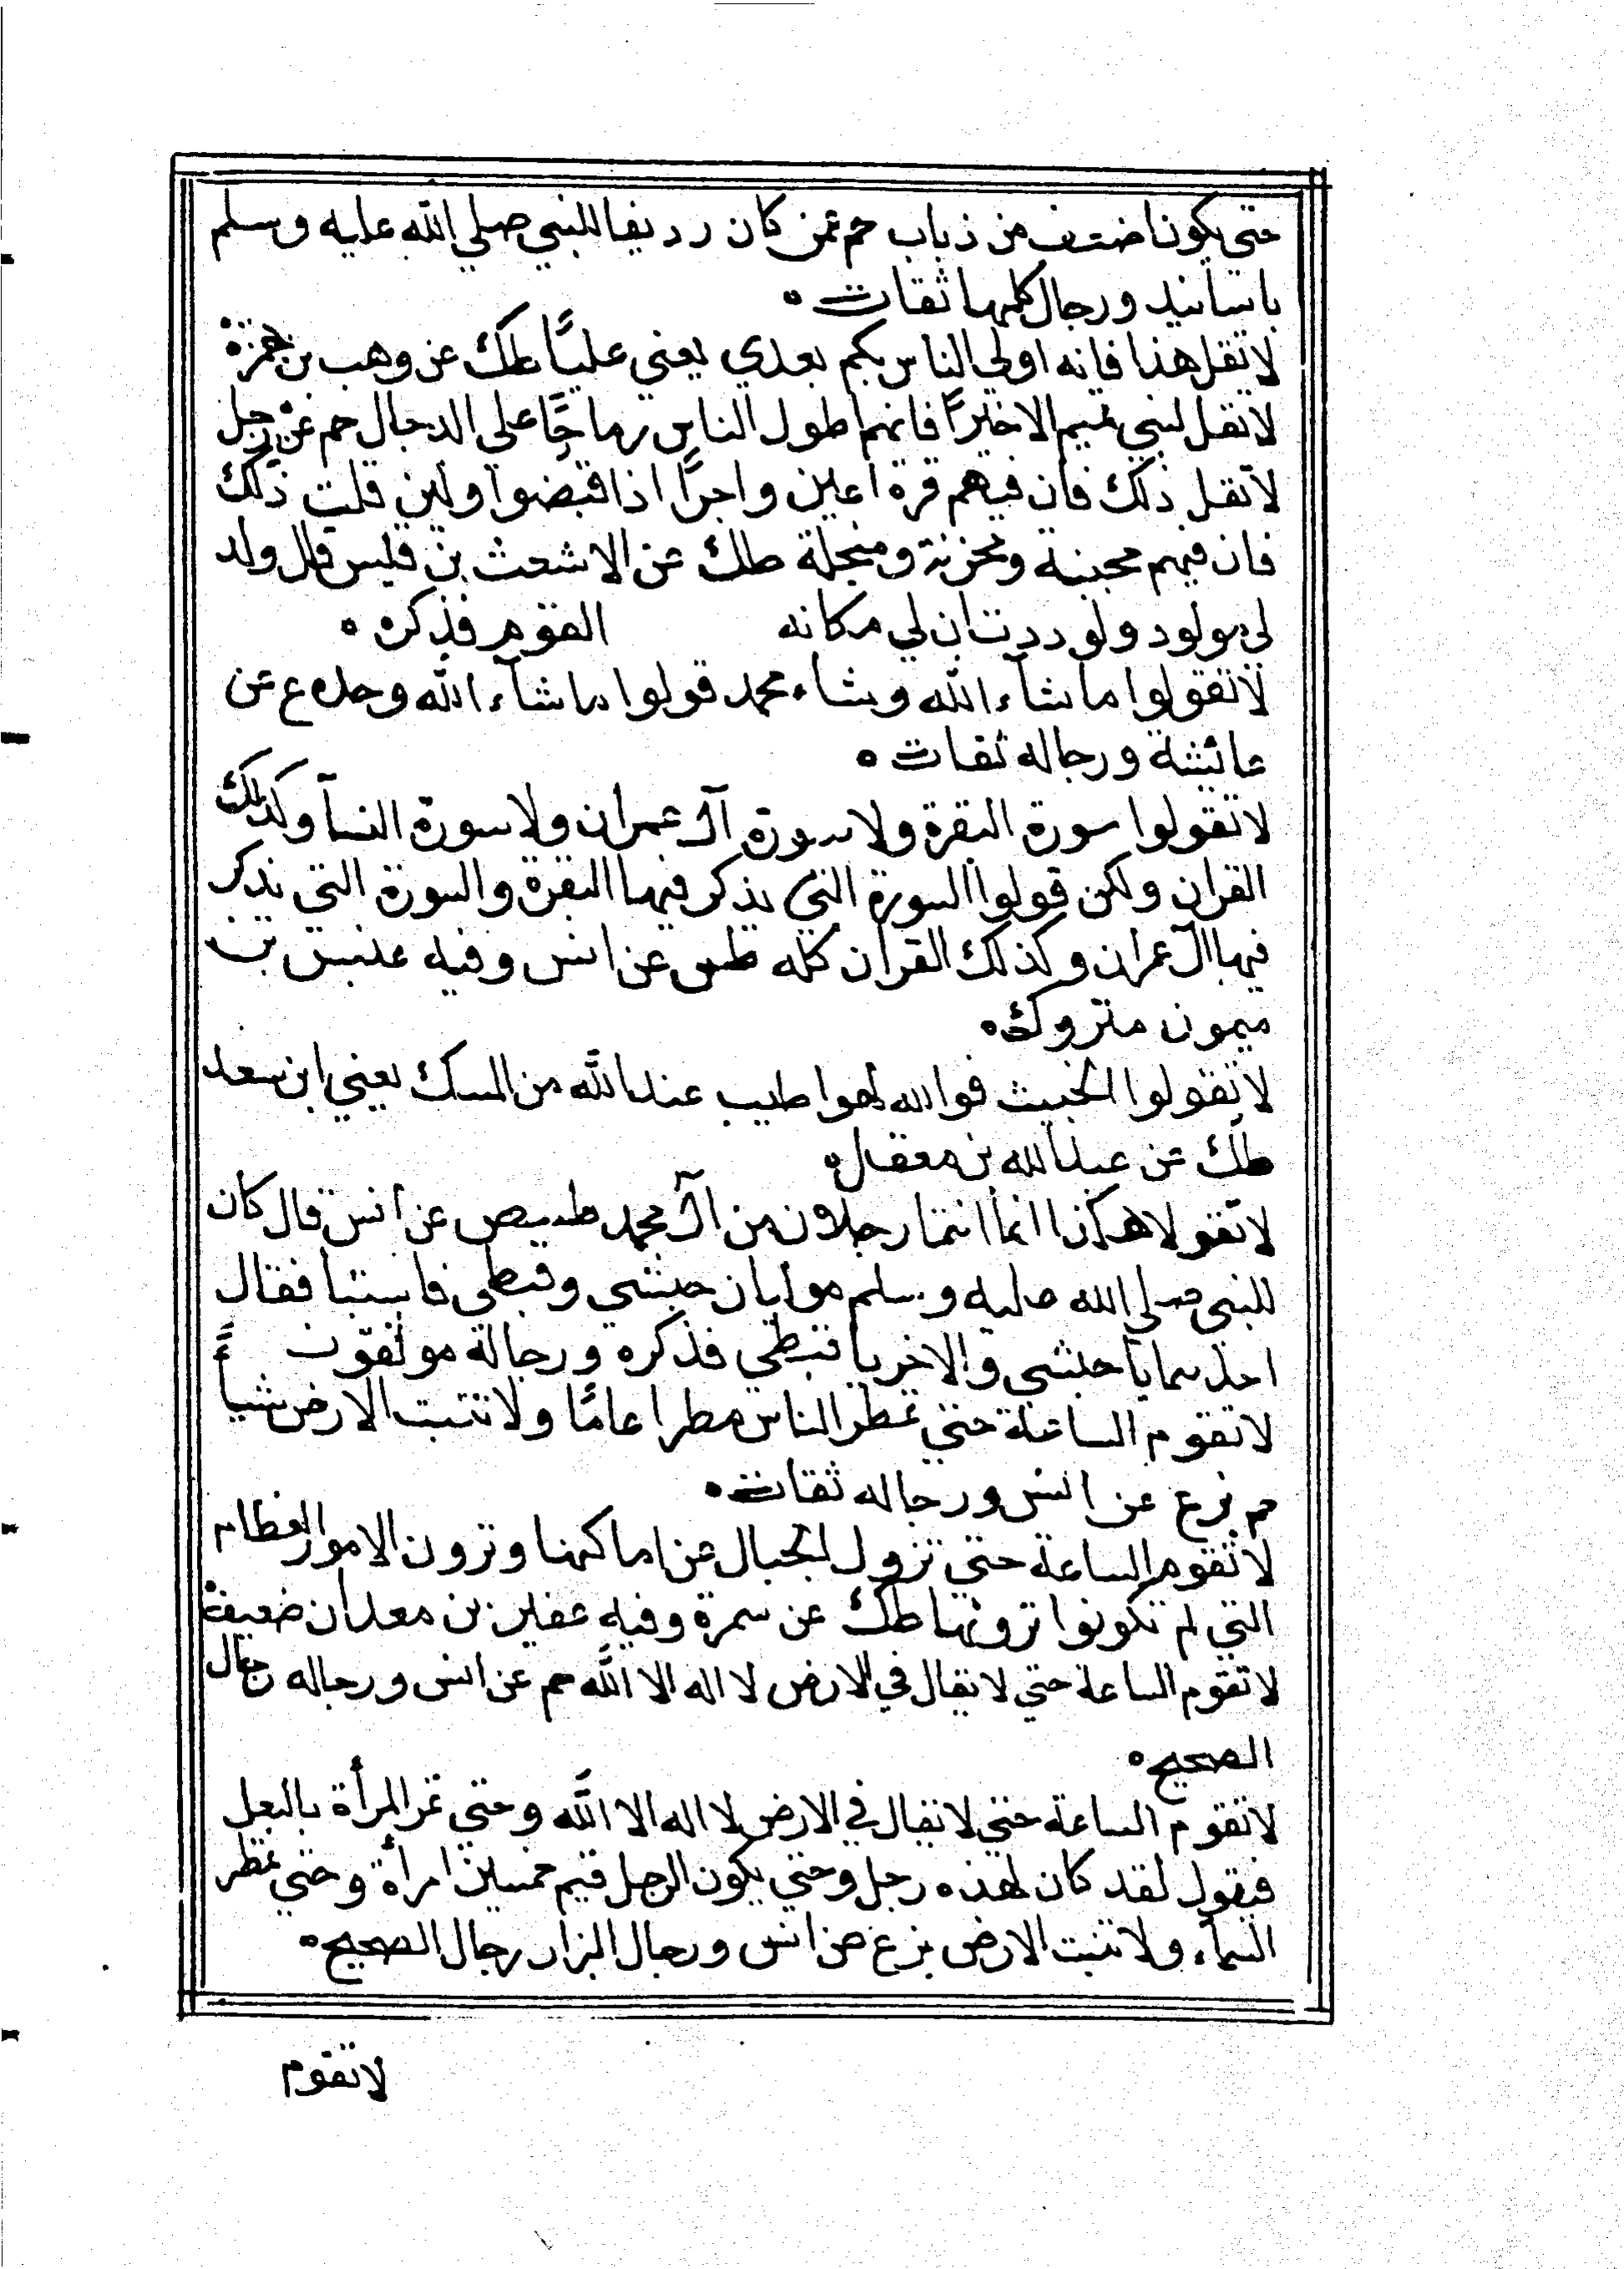 حتى يكون اضعف من ذباب حم عمن كان رديفا للنبي صلي الله عليه وسلم
باسانيد ورجال كلها ثقات ه
لا تقل هذا فانه اولي الناس بكم بعدي يعني عليًّا طك عن وهب بن حمزة
لا تقل لبني تميم الا خيرًا فانهم اطول الناس رماحًا على الدجال حم عن رجل
لا تقل ذلك فان فيهم قرة اعين واجرًا اذا قبضوا ولين قلت ذلك
فان فيهم مجبنة ومحزنة ومبخلة طك عن الاشعث بن قيس قال ولد
لي مولود ولوددت ان لي مكانه القوم فذكره ه
لا تقولوا ما شآء الله وشاء محمد قولوا ما شآء الله وحده ع عن
عائشة ورجاله ثقات ه
لا تقولوا سورة البقرة ولا سورة آل عمران ولا سورة النسآ وكذلك
القران ولكن قولوا السورة التي يذكر فيها البقرة والسورة التي يذكر
فيها آل عمران وكذلك القران كله طس عن انس وفيه عبيس بن
ميمون متروك ه
لا تقولوا الخبيث فوالله لهو اطيب عند الله من المسك يعني ابن سعد
طك عن عبد الله بن معقل ه
لا تقولا هكذا انما انتما رجلان من آل محمد طسص عن انس قال كان
للنبي صلي الله عليه وسلم موليان حبشي وقبطي فاستبا فقال
احدهما يا حبشي والاخر يا قبطي فذكره ورجاله موثقون
لا تقوم الساعة حتي تمطر الناس مطرا عامًا ولا تنبت الارض شيأً
حم بز ع عن انس ورجاله ثقات ه
لا تقوم الساعة حتي تزول الجبال عن اماكنها وترون الامور العظام
التي لم تكونوا ترونها طك عن سمرة وفيه عفير بن معدان ضعيف ه
لا تقوم الساعة حتي لا يقال في الارض لا اله الا الله حم عن انس ورجاله رجال
الصحيح ه
لا تقوم الساعة حتي لا يقال في الارض لا اله الا الله وحتي تمر المرأة بالبعل
فيقول لقد كان لهذه رجل وحتي يكون الرجل قيم خمسين امرأة وحتي تمطر
السمآء ولا تنبت الارض بز ع عن انس ورجال البزار رجال الصحيح ه
لا تقوم